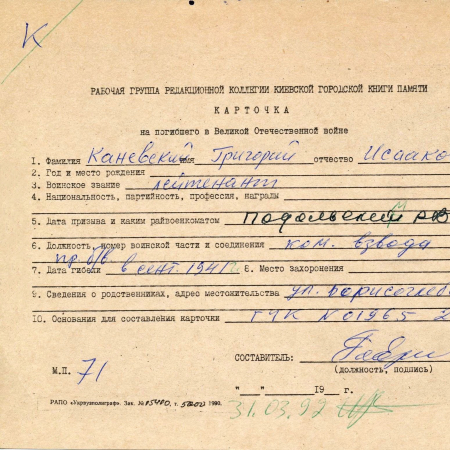 К
РАБОЧАЯ ГРУППА РЕДАКЦИОННОЙ КОЛЛЕГИИ КИЕВСКОЙ ГОРОДСКОЙ КНИГИ ПАМЯТИ
КАРТОЧКА
на погибшего в Великой Отечественной войне
1. Фамилия Каневский имя Григорий отчество Исаако
2. Год и место рождения
3. Воинское звание лейтенант
4. Национальность, партийность, профессия, награды
5. Дата призыва и каким райвоенкоматом Подольский
6. Должность, номер воинской части и соединения ком. взвода
пр. б/в
7. Дата гибели в сент. 1941 г. 8. Место захоронения
9. Сведения о родственниках, адрес местожительства ул. Борисоглеб
10. Основания для составления карточки N 01965
СОСТАВИТЕЛЬ:
(должность, подпись)
М.П. 71
"___"___ 19___ г.
31.03.92
РАПО «Укрвузполиграф». Зак. № 1990.